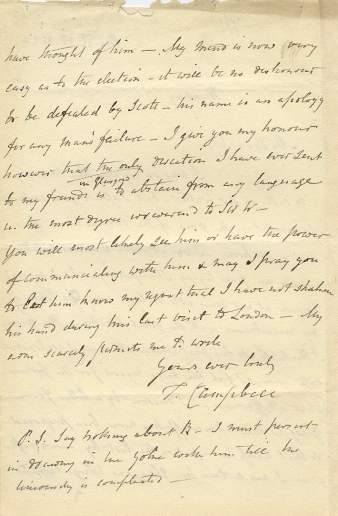 have thought of him — My mind is now very
easy as to the election — it will be no dishonour
to be defeated by Scott — his name is an apology
for any man's failure — I give you my honour
however that the only direction I have ever sent
in Glasgow
to my friends is to abstain from any language
in the most degree irreverend to Sir W —
You will most likely see him or have the power
of communicating with him & may I pray you
to let him know my regret that I have not shaken
his hand during his last visit to London — My
arm scarcely permits me to write
Yours ever truly
T. Campbell
P. S. Say nothing about R — I must persist
in drawing in the yoke with him till the
is completed —